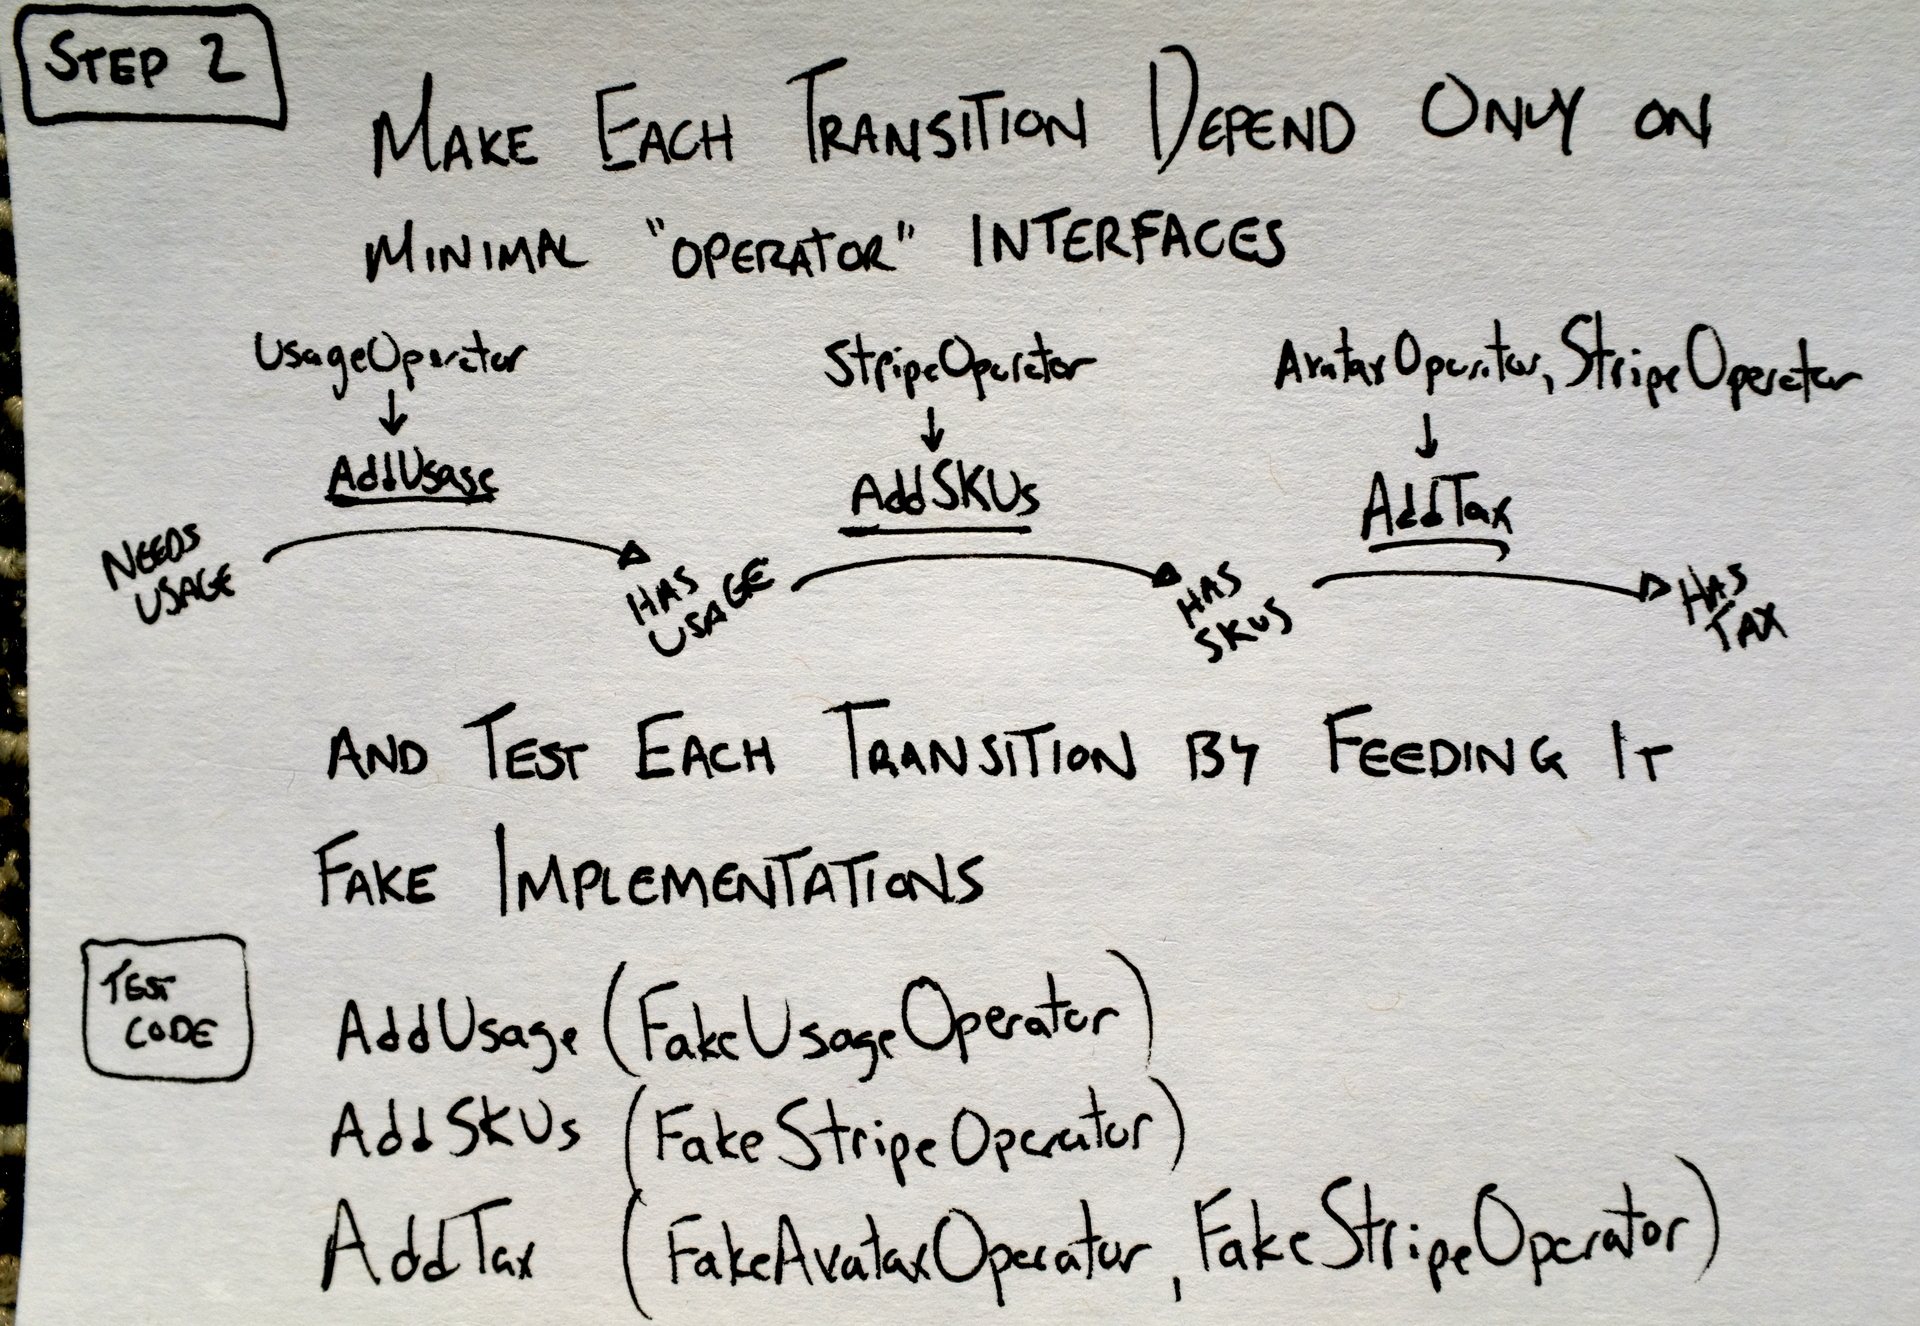 STEP 2
MAKE EACH TRANSITION DEPEND ONLY ON
MINIMAL "OPERATOR" INTERFACES
UsageOperator
StripeOperator
AvataxOperator, StripeOperator
AddUsage
AddSKUs
AddTax
NEEDS
USAGE
HAS
USAGE
HAS
SKUS
HAS
TAX
AND TEST EACH TRANSITION BY FEEDING IT
FAKE IMPLEMENTATIONS
TEST
CODE
AddUsage (FakeUsageOperator)
AddSKUs (FakeStripeOperator)
AddTax (FakeAvataxOperator, FakeStripeOperator)